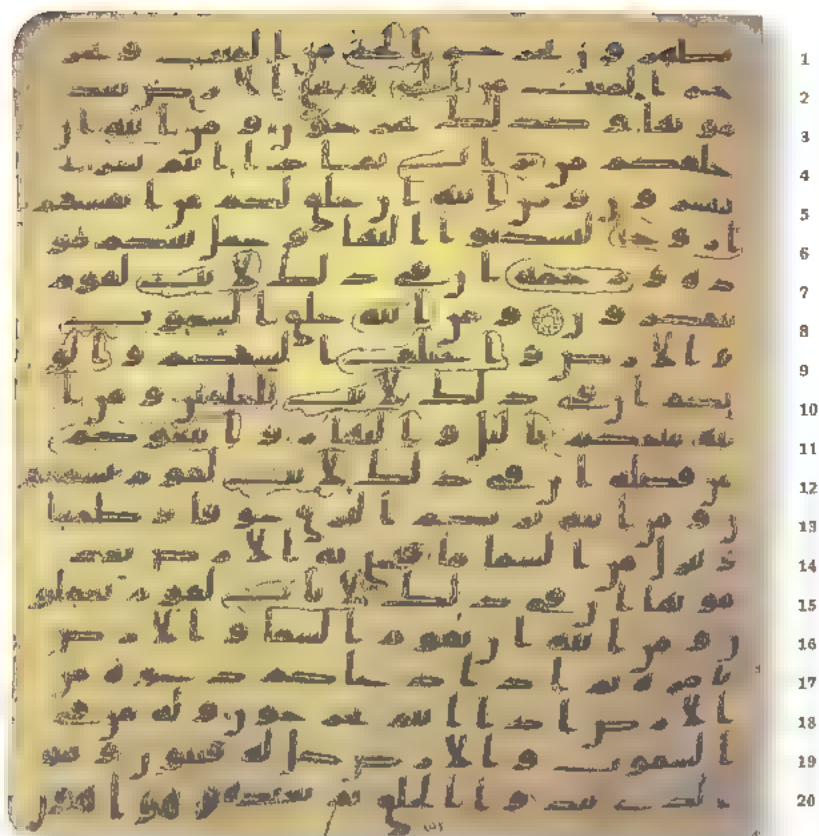 1 تظهرون يخرج الحي من الميت ويخر
2 ج الميت من الحي ويحي الارض بعد
3 موتها وكذلك تخرجون ومن ايته ان
4 خلقكم من تراب ثم اذا انتم بشر
5 تنتشرون ومن ايته ان خلق لكم من انفسكم
6 ازوجا لتسكنوا اليها وجعل بينكم مو
7 دة ورحمة ان في ذلك لايت لقوم
8 يتفكرون ومن ايته خلق السموت
9 والارض واختلف السنتكم والو
10 نكم ان في ذلك لايت للعلمين ومن ا
11 يته منامكم باليل والنهار وابتغاوكم
12 من فضله ان في ذلك لايت لقوم يسمعو
13 ن ومن ايته يريكم البرق خوفا وطمعا
14 وينزل من السما ما فيحي به الارض بعد
15 موتها ان في ذلك لايت لقوم يعقلو
16 ن ومن ايته ان تقوم السما والارض
17 بامره ثم اذا دعاكم دعوة من
18 الارض اذا انتم تخرجون وله من في
19 السموت والارض كل له قنتون وهو
20 الذي يبدوا الخلق ثم يعيده وهو اهون